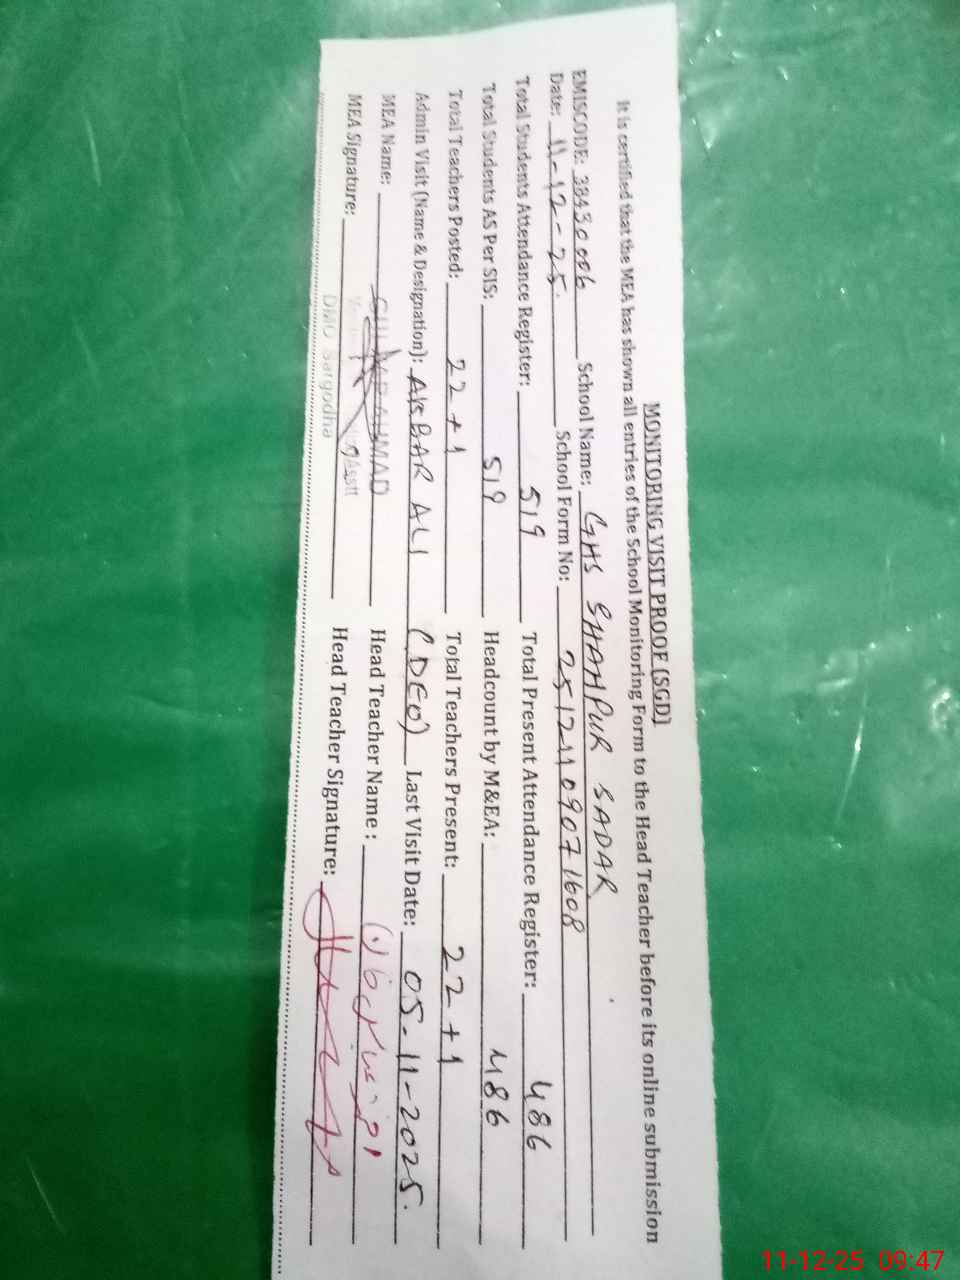 MONITORING VISIT PROOF (SGD)
It is certified that the MEA has shown all entries of the School Monitoring Form to the Head Teacher before its online submission
EMISCODE: 38430006 School Name: GHS SHAHPUR SADAR
Date: 11-12-25. School Form No: 25121109071608
Total Students Attendance Register: 519 Total Present Attendance Register: 486
Total Students AS Per SIS: 519 Headcount by M&EA: 486
Total Teachers Posted: 22+1 Total Teachers Present: 22+1
Admin Visit (Name & Designation): AKBAR ALI (DEO) Last Visit Date: 05-11-2025.
MEA Name: AHMAD Head Teacher Name :
MEA Signature: Asstt Head Teacher Signature:
DMO Sargodha
11-12-25 09:47